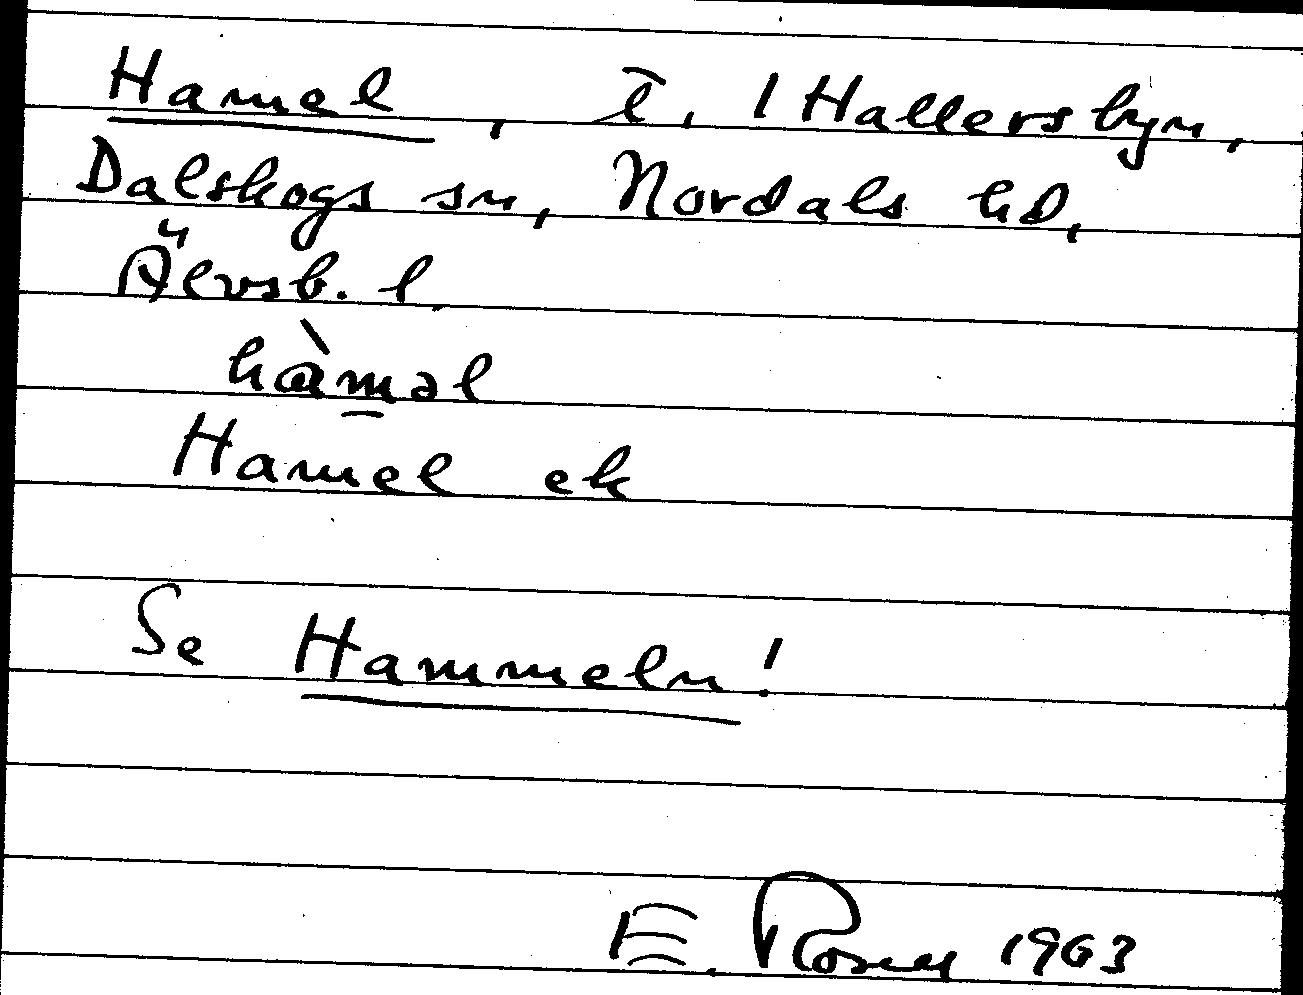 Hamel, t, 1 Hallersbyn,
Dalskogs sn, Nordals hd,
Älvsb. l.
hàməl
Hamel ek
Se Hammeln!
E. Rosen 1963